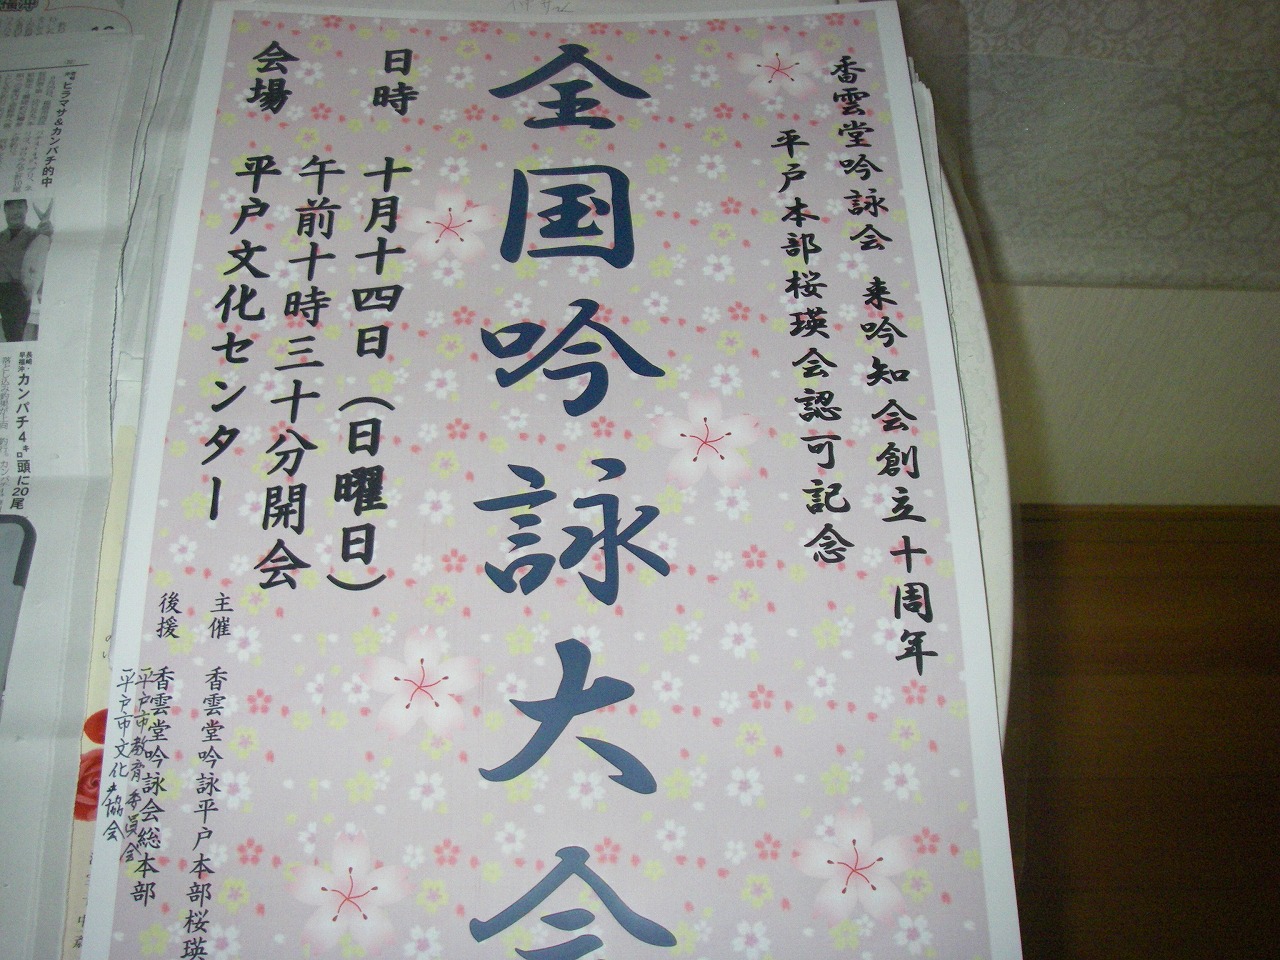 香雲堂吟詠会 来吟知会創立十周年
平戸本部桜瑛会認可記念
全国吟詠大会
日時 十月十四日(日曜日)
午前十時三十分開会
会場 平戸文化センター
主催 香雲堂吟詠平戸本部桜瑛
後援 香雲堂吟詠会総本部
平戸市教育委員会
平戸市文化協会
ヒラマサ&カンパチ的中
カンパチ4㌔頭に20尾